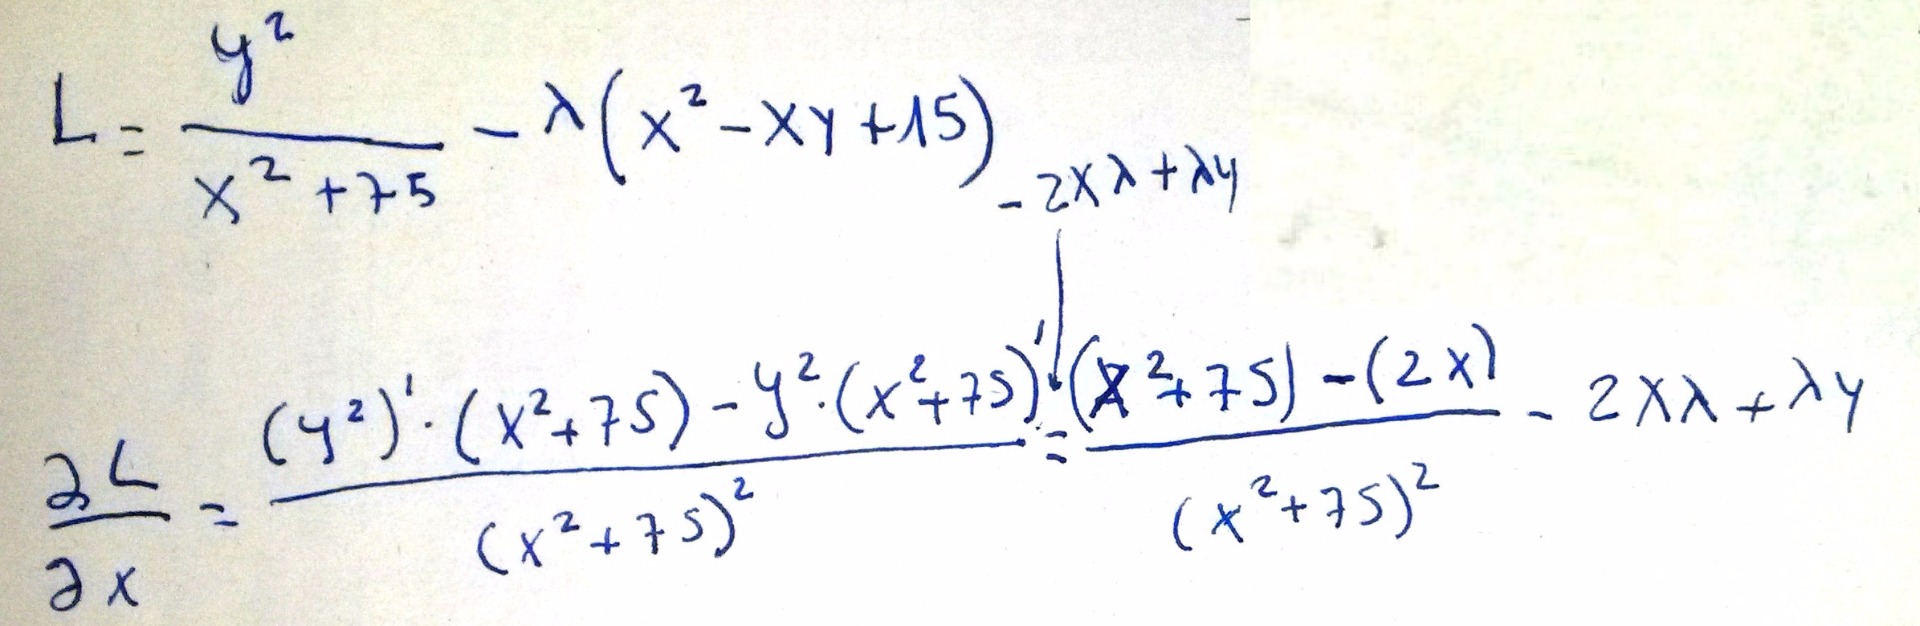 L = y² / (x² + 75) − λ(x² − xy + 15)
− 2xλ + λy
∂L/∂x = ((y²)' · (x² + 75) − y² · (x² + 75)') / (x² + 75)² = ((x² + 75) − (2x)) / (x² + 75)² − 2xλ + λy